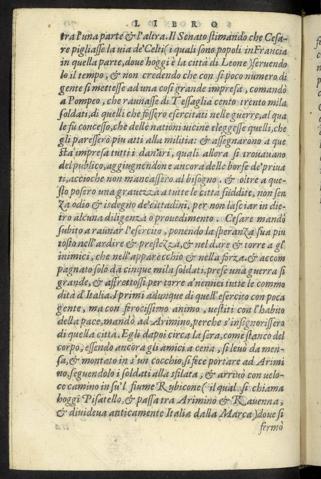 LIBRO
tra l'una parte & l'altra. Il Senato stimando che Cesa-
re pigliasse la via de' Celti (i quali sono popoli in Francia
in quella parte, dove hoggi è la città di Leone) servendo
lo il tempo, & non credendo che con sì poco numero di
gente si mettesse ad una così grande impresa, comandò
a Pompeo, che raunasse di Tessaglia cento trenta mila
soldati, di quelli che fossero esercitati nelle guerre, al qua
le fu concesso, che delle nationi vicine eleggesse quelli, che
gli paressero piu atti alla militia: & assegnarono a que
sta impresa tutti i danari, quali allora si trovavano
del publico, aggiugnendone ancora delle borse de' priva
ti, accioche non mancassero al bisogno, & oltre a que-
sto posero una gravezza a tutte le città suddite, non sen
za odio & isdegno de' cittadini, per non lasciar in die-
tro alcuna diligenza o provedimento. Cesare mandò
subito a raunar l'esercito, ponendo la speranza sua piu
tosto nell'ardire & prestezza, & nel dare & torre a gl'
inimici, che nell'apparecchio & nella forza, & accom
pagnato solo da cinque mila soldati, prese una guerra sì
grande, & affrettossi per torre a' nemici tutte le commo
dità d'Italia. I primi adunque di quell'esercito con poca
gente, ma con ferocissimo animo, vestiti con l'habito
della pace, mandò ad Arimino, perche s'insignorissero
di quella città. Egli dapoi circa la sera, come stanco del
corpo, essendo ancora gli amici a cena, si levò da men-
sa, & montato in s'un cocchio, si fece portare ad Arimi
no, seguendolo i soldati alla sfilata, & arrivò con velo-
ce camino in su'l fiume Rubicone (il qual si chiama
hoggi Pisatello, & passa tra Arimino & Ravenna,
& divideva anticamente Italia dalla Marca) dove si
fermò